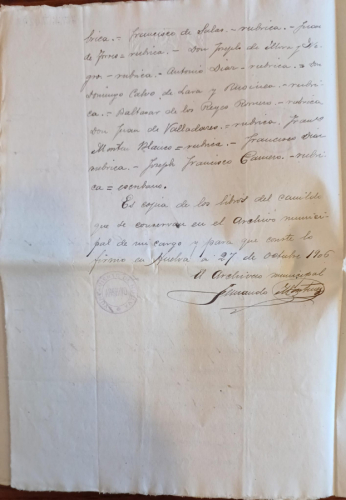 brica.- Francisco de Salas.- rubrica.- Juan
de Torres = rubrica.- Don Joseph de Mora,
gro.- rubrica.- Antonio Diaz - rubrica.
Domingo Calvo de Lara y - rubri-
ca.- Baltasar de los Reyes Romero.- rubrica
Don Juan de Valladares - rubrica.
Martin Blanco = rubrica.- Francisco Diaz
rubrica.- Joseph Francisco - rubri-
ca = escribano.
Es copia de los libros del Cabildo
que se conservan en el Archivo munici-
pal de mi cargo y para que conste lo
firmo en Huelva á 27 de Octubre 1906
El Archivero municipal